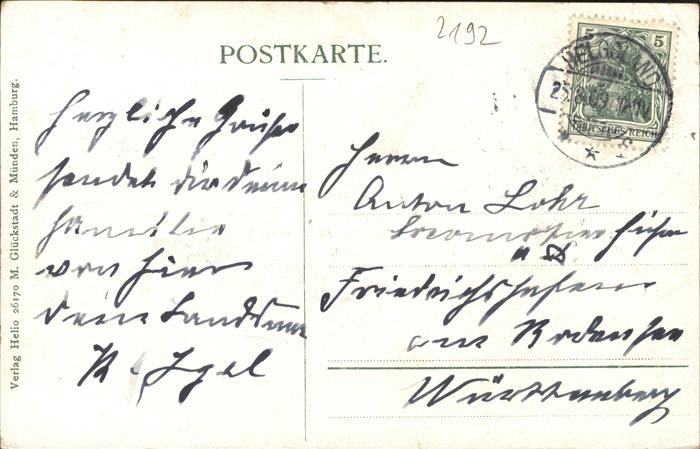 2192
POSTKARTE.
5 5
DEUTSCHES REICH
HELGOLAND
Verlag Helio 26170 M. Glückstadt & Münden, Hamburg.
Herzliche Grüße
sendet dir deiner
Familie
von hier
dein Landsmann
K. Igel
Herrn
Anton Lohr
Locomotivführer
a D
Friedrichshafen
am Bodensee
Württemberg